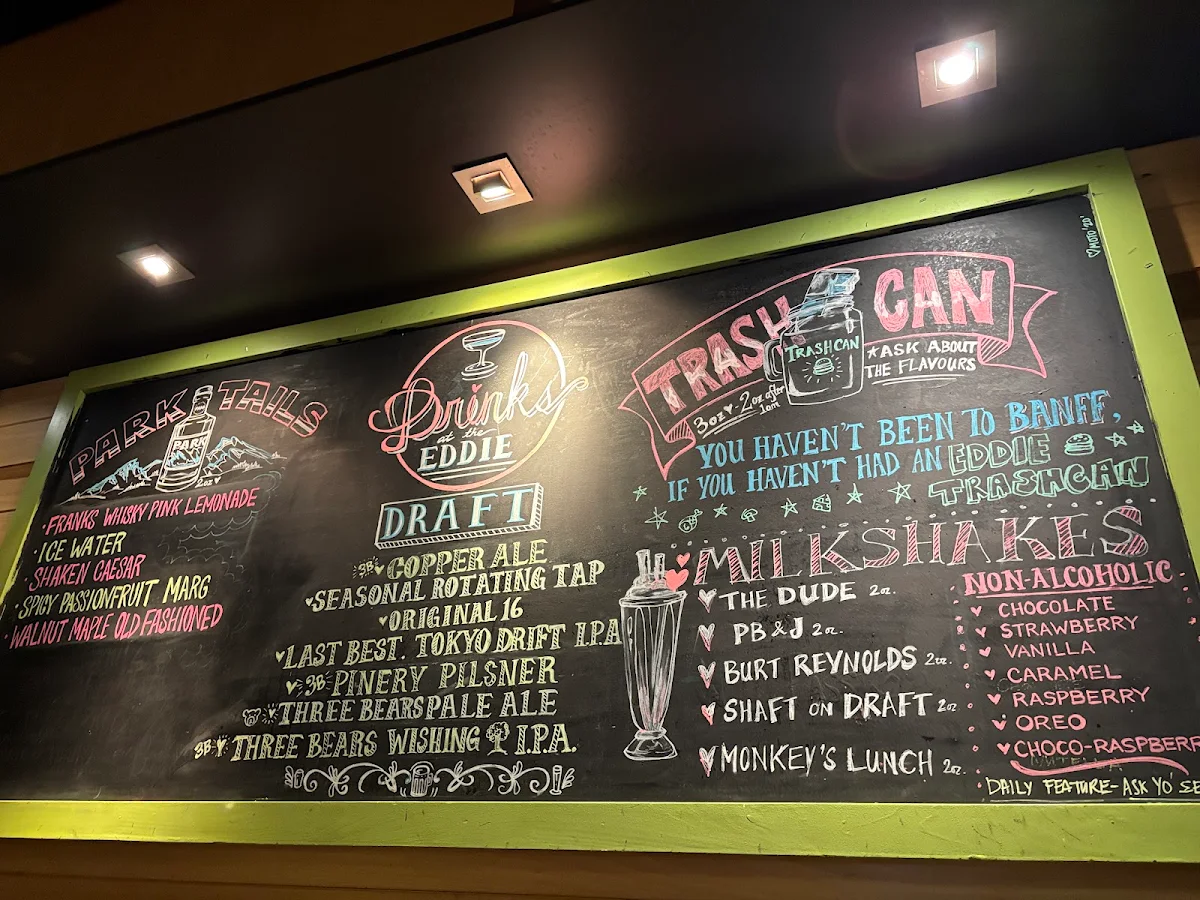 PARK TAILS
PARK
2oz
·FRANKS WHISKY PINK LEMONADE
·ICE WATER
·SHAKEN CAESAR
·SPICY PASSIONFRUIT MARG
·WALNUT MAPLE OLD FASHIONED
Drinks
at the
EDDIE
DRAFT
3B COPPER ALE
SEASONAL ROTATING TAP
ORIGINAL 16
LAST BEST. TOKYO DRIFT I.P.A
3B PINERY PILSNER
THREE BEARS PALE ALE
3B THREE BEARS WISHING I.P.A.
TRASH CAN
TRASHCAN
3oz - 2oz after 1am
*ASK ABOUT
THE FLAVOURS
YOU HAVEN'T BEEN TO BANFF,
IF YOU HAVEN'T HAD AN EDDIE
TRASHCAN
MILKSHAKES
THE DUDE 2oz.
PB&J 2oz.
BURT REYNOLDS 2oz.
SHAFT ON DRAFT 2oz
MONKEY'S LUNCH 2oz.
NON-ALCOHOLIC
CHOCOLATE
STRAWBERRY
VANILLA
CARAMEL
RASPBERRY
OREO
CHOCO-RASPBERR
DAILY FEATURE - ASK YO' SE